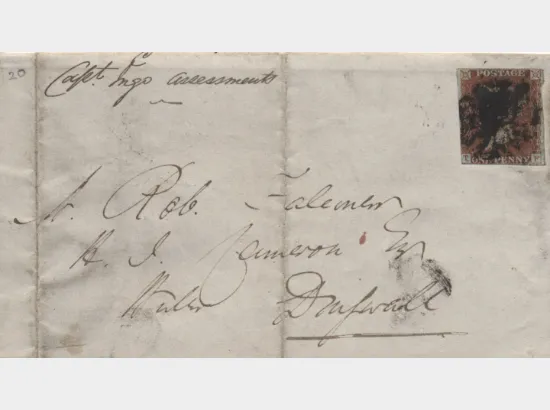 20
Capt. Ingo assessments
POSTAGE
ONE PENNY
Mr. Rob. Falconer
H. J. Cameron Esq
Dingwall